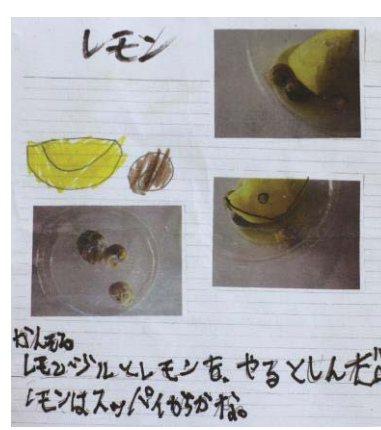 レモン
かんそう。
レモンジルとレモンを、やるとしんだ。
レモンはスッパイからかな。